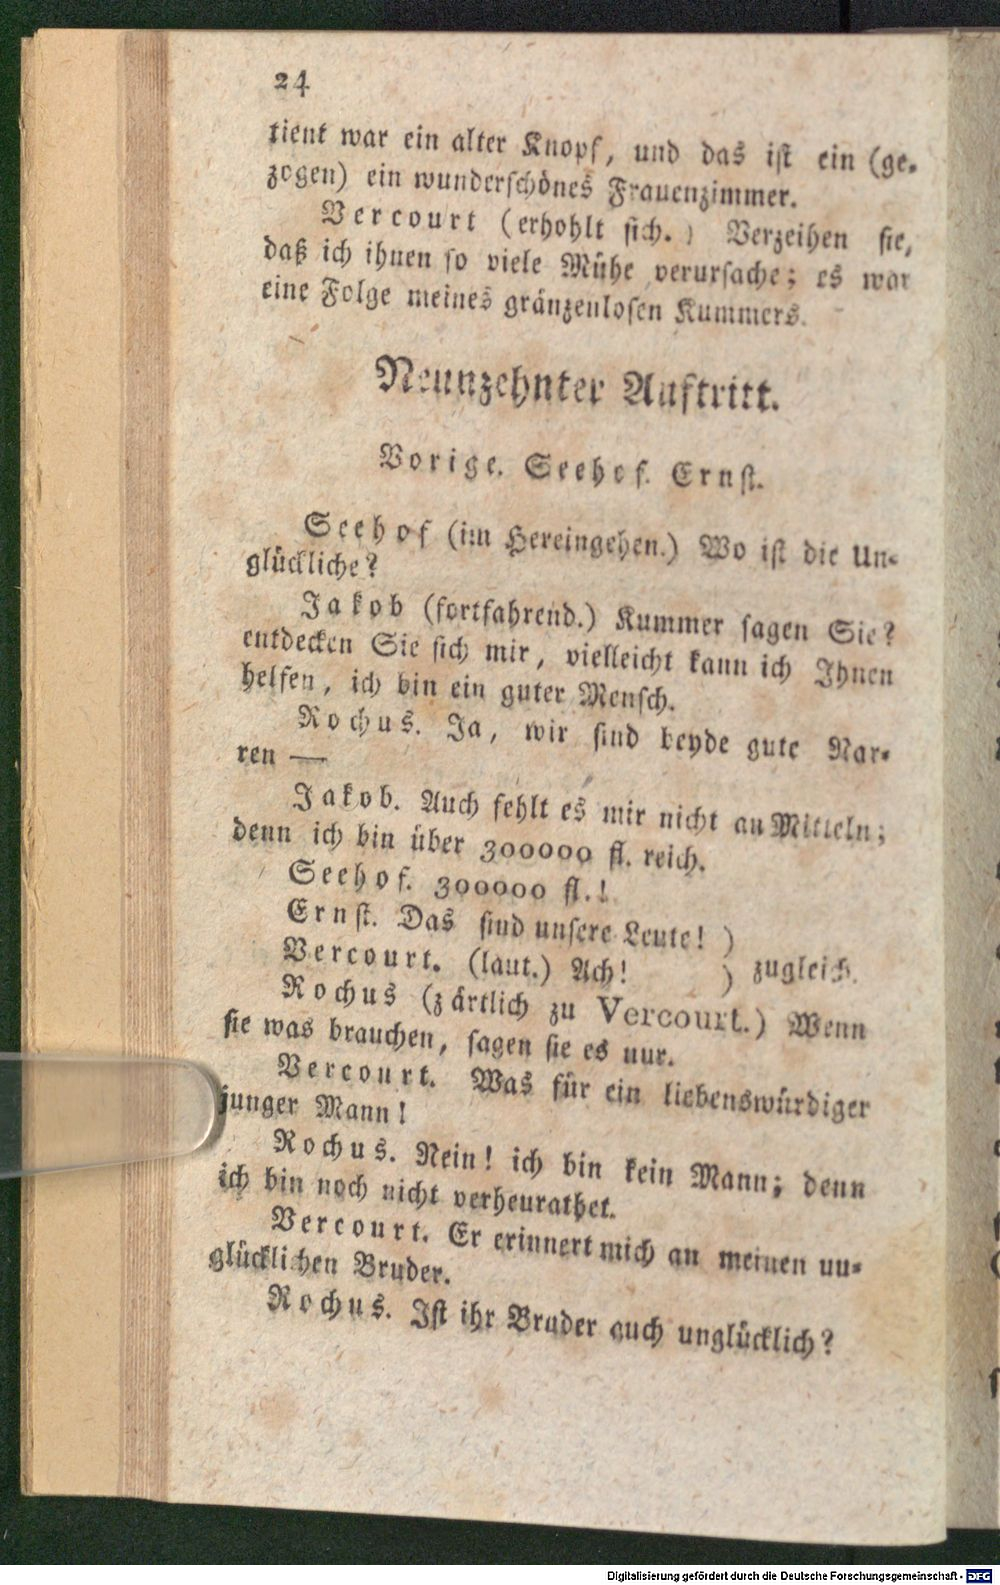 24
tient war ein alter Knopf, und das ist ein (ge-
zogen) ein wunderschönes Frauenzimmer.
Vercourt (erhohlt sich.) Verzeihen sie,
daß ich ihnen so viele Mühe verursache; es war
eine Folge meines gränzenlosen Kummers.
Neunzehnter Auftritt.
Vorige. Seehof. Ernst.
Seehof (im Hereingehen.) Wo ist die Un-
glückliche?
Jakob (fortfahrend.) Kummer sagen Sie?
entdecken Sie sich mir, vielleicht kann ich Ihnen
helfen, ich bin ein guter Mensch.
Rochus. Ja, wir sind beyde gute Nar-
ren —
Jakob. Auch fehlt es mir nicht an Mitteln;
denn ich bin über 300000 fl. reich.
Seehof. 300000 fl.!
Ernst. Das sind unsere Leute! )
Vercourt. (laut.) Ach! ) zugleich.
Rochus (zärtlich zu Vercourt.) Wenn
sie was brauchen, sagen sie es nur.
Vercourt. Was für ein liebenswürdiger
junger Mann!
Rochus. Nein! ich bin kein Mann; denn
ich bin noch nicht verheurathet.
Vercourt. Er erinnert mich an meinen un-
glücklichen Bruder.
Rochus. Ist ihr Bruder auch unglücklich?
Digitalisierung gefördert durch die Deutsche Forschungsgemeinschaft - DFG